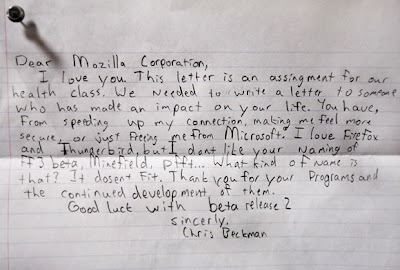 Dear Mozilla Corporation,
I love you This letter is an assingment for our
health class. We needed to write a letter to someone
who has made an impact on your life. You have,
From speeding up my connection, making me feel more
secure, or just freeing me from Microsoft. I love FireFox
and Thunderbird, but I dont like your naming of
FF3 beta, Minefield, pfft... What kind of name is
that? It dosent Fit. Thank you for your Programs and
the continued development of them.
Good luck with beta release 2
sincerly,
Chris Beckman